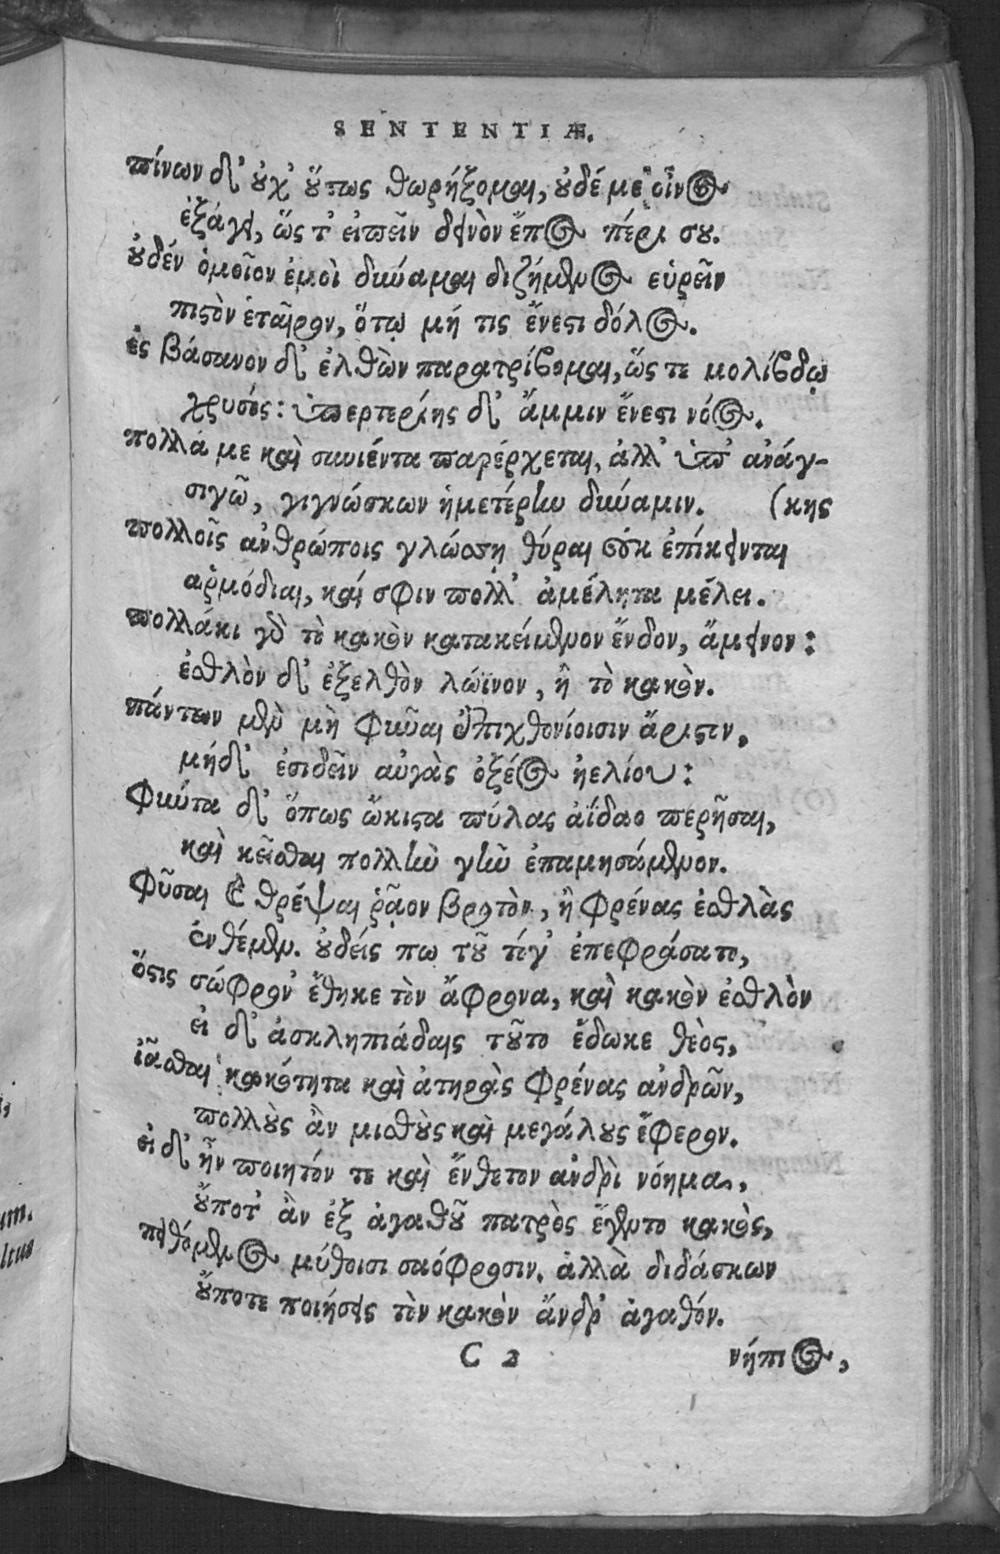 SENTENTIÆ.
πίνων δ' οὐχ' οὕτως θωρήξομαι, οὐδέ με οἶνος
ἐξάγει, ὥς τ' εἰπεῖν δεινὸν ἔπος πέρι σου.
οὐδέν ὁμοῖον ἐμοὶ δύναμαι διζήμενος εὑρεῖν
πιστὸν ἑταῖρον, ὅτῳ μή τις ἔνεστι δόλος.
ἐς βάσανον δ' ἐλθὼν παρατρίβομαι, ὥς τε μολίβδῳ
χρυσός: ὑπερτερίης δ' ἄμμιν ἔνεστι νόος.
πολλά με καὶ συνιέντα παρέρχεται, ἀλλ' ὑπ' ἀνάγ-
σιγῶ, γιγνώσκων ἡμετέρην δύναμιν. (κης
πολλοῖς ἀνθρώποις γλώσσῃ θύραι οὐκ ἐπίκεινται
ἁρμόδιαι, καί σφιν πολλ' ἀμέλητα μέλει.
πολλάκι γὰρ τὸ κακὸν κατακείμενον ἔνδον, ἄμεινον:
ἐσθλὸν δ' ἐξελθὸν λώϊνον, ἢ τὸ κακόν.
πάντων μὲν μὴ φῦναι ἐπιχθονίοισιν ἄριστον,
μήδ' ἐσιδεῖν αὐγὰς ὀξέος ἠελίου:
φύντα δ' ὅπως ὤκιστα πύλας ἀΐδαο περῆσαι,
καὶ κεῖσθαι πολλὴν γῆν ἐπαμησάμενον.
φῦσαι καὶ θρέψαι ῥᾷον βροτὸν, ἢ φρένας ἐσθλὰς
ἐνθέμεν. οὐδείς πω τοῦ τόγ' ἐπεφράσατο,
ὅστις σώφρον' ἔθηκε τὸν ἄφρονα, καὶ κακὸν ἐσθλὸν
εἰ δ' ἀσκληπιάδαις τοῦτο ἔδωκε θεὸς,
ἰᾶσθαι κακότητα καὶ ἀτηρὰς φρένας ἀνδρῶν,
πολλοὺς ἂν μισθοὺς καὶ μεγάλους ἔφερον.
εἰ δ' ἦν ποιητόν τε καὶ ἔνθετον ἀνδρὶ νόημα,
οὔποτ' ἂν ἐξ ἀγαθοῦ πατρὸς ἔγεντο κακὸς,
πειθόμενος μύθοισι σαόφροσιν. ἀλλὰ διδάσκων
οὔποτε ποιήσεις τὸν κακὸν ἄνδρ' ἀγαθόν.
C 2 νήπιος,
um.
ltus